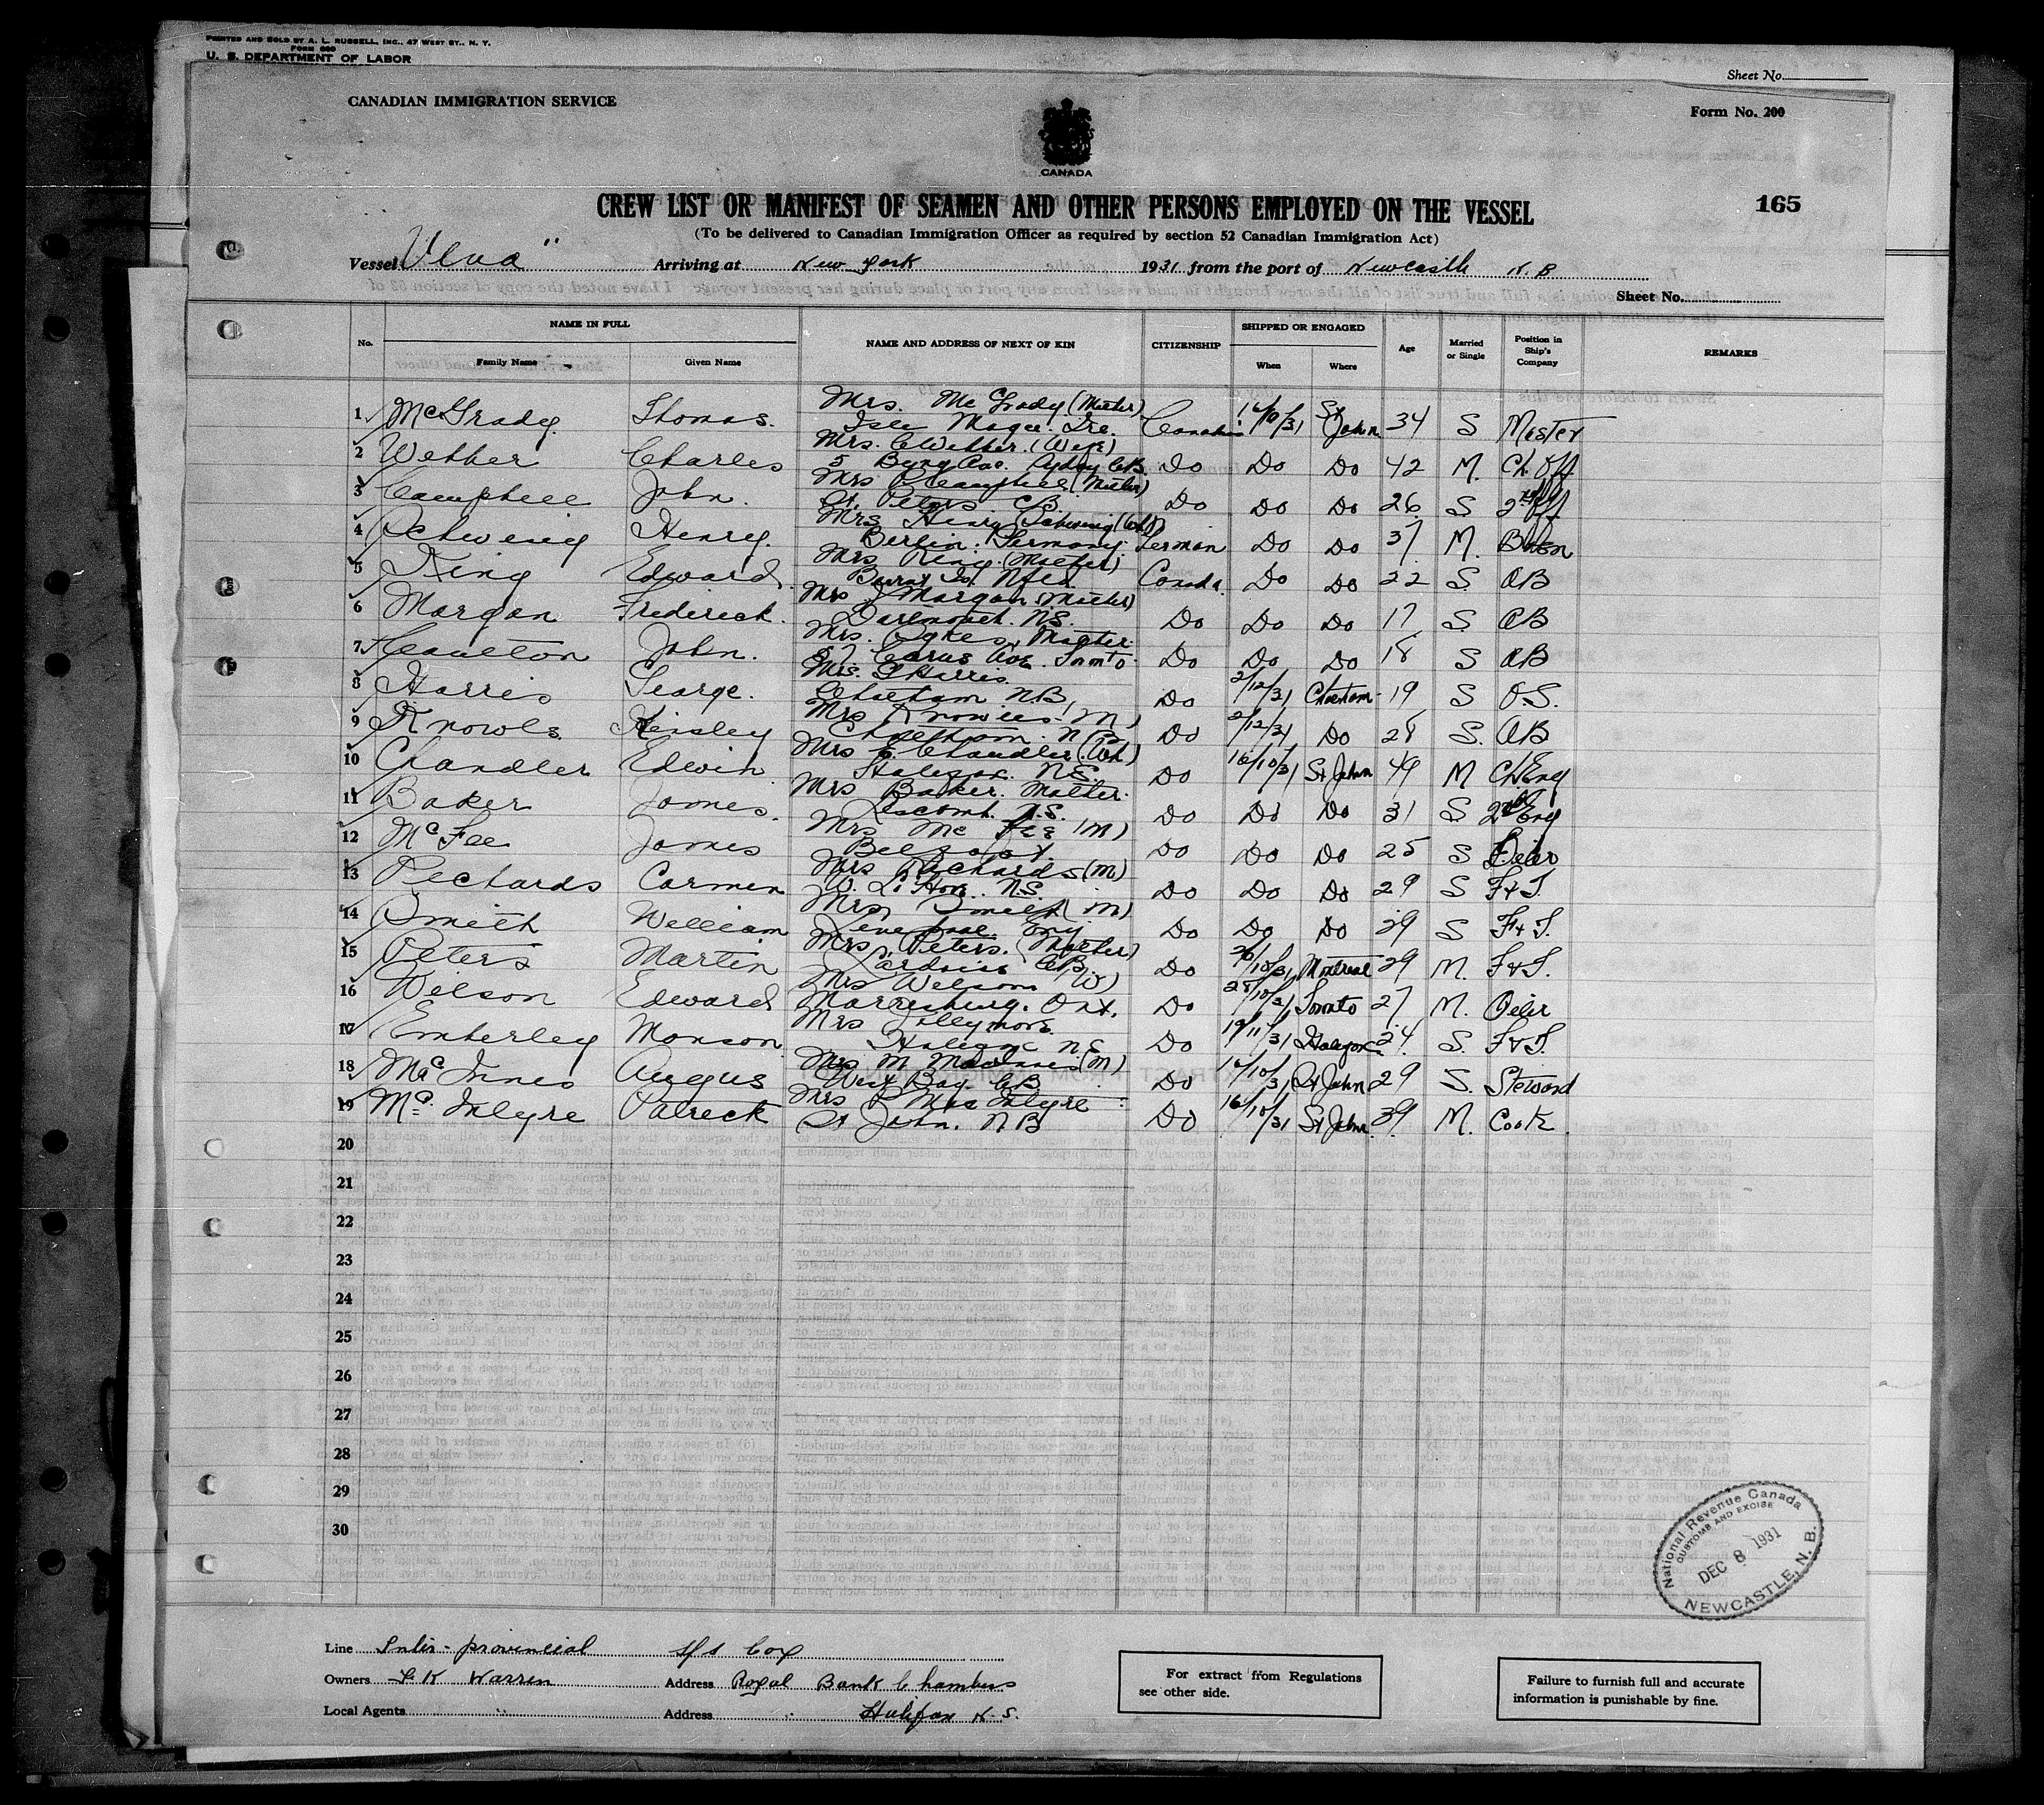 PRINTED AND SOLD BY A. L. RUSSELL, INC., 47 WEST ST., N. Y.
FORM 689
U. S. DEPARTMENT OF LABOR
Sheet No.
CANADIAN IMMIGRATION SERVICE
Form No. 200
CANADA
CREW LIST OR MANIFEST OF SEAMEN AND OTHER PERSONS EMPLOYED ON THE VESSEL
165
(To be delivered to Canadian Immigration Officer as required by section 52 Canadian Immigration Act)
Vessel Ulva" Arriving at New York 1931 from the port of Newcastle N B
Sheet No.
No. NAME IN FULL Family Name Given Name NAME AND ADDRESS OF NEXT OF KIN CITIZENSHIP SHIPPED OR ENGAGED When Where Age Married or Single Position in Ship's Company REMARKS
1 McGrady Thomas. Mrs. McGrady (Mother) Isle Magee Ire. Canadian 16/10/31 St John 34 S Master
2 Webber Charles Mrs. C Webber. (Wife) 5 Byng Ave. Sydney CB. Do Do Do 42 M. Ch Off
3 Campbell John. Mrs Campbell (Mother) St. Peters CB. Do Do Do 26 S 2nd Off
4 Schwing Henry. Mrs Henry Schwing (Wf) Berlin. Germany. German Do Do 37 M. Bosn
5 King Edward. Mrs King (Mother) Nfld. Canada. Do Do 22 S. AB
6 Morgan Frederick. Mrs J Morgan (Mother) Dartmouth. N.S. Do Do Do 17 S. AB
7 John. Mrs. Sykes, Mother. 57 Carus Ave. Toronto. Do Do Do 18 S AB
8 Harris George. Mrs. G Harris. Chatham N.B, Do 2/12/31 Chatham 19 S O.S.
9 Knowls Mrs Knowles. M) Chatham. N B Do 2/12/31 Do 28 S. AB
10 Chandler Edwin Mrs E. Chandler (Wf) Halifax. N.S. Do 16/10/31 St John 49 M Ch Eng
11 Baker James. Mrs Baker. Mother. Liscomb. N.S. Do Do Do 31 S. 2nd Eng
12 McFee James Mrs McFee (M) Belfast. Do Do Do 25 S Oiler
13 Richards Carmen Mrs Richards (M) W. La Have. N.S. Do Do Do 29 S F & T.
14 Smith William Mrs Smith (M) Liverpool Eng Do Do Do 29 S F & T.
15 Peters Martin Mrs. Peters. (Mother) CB. Do 26/10/31 Montreal 29 M. F & T.
16 Wilson Edward Mrs Wilson (W) Morrisburg. Ont. Do 28/10/31 Toronto 27 M. Oiler
17 Emberley Monson Mrs Halifax N S Do 19/11/31 Halifax 24 S. F & T.
18 McInnes Angus Mrs M MacInnes (M) West Bay CB Do 16/10/31 St John 29 S. Steward
19 McIntyre Patrick Mrs P MacIntyre St John. N B Do 16/10/31 St John 39 M. Cook
20
21
22
23
24
25
26
27
28
29
30
National Revenue Canada
CUSTOMS AND EXCISE
DEC 8 1931
NEWCASTLE, N. B.
Line Inter-provincial S/S Coy
Owners F K Warren Address Royal Bank Chambers
Local Agents " Address " Halifax N.S.
For extract from Regulations
see other side.
Failure to furnish full and accurate
information is punishable by fine.